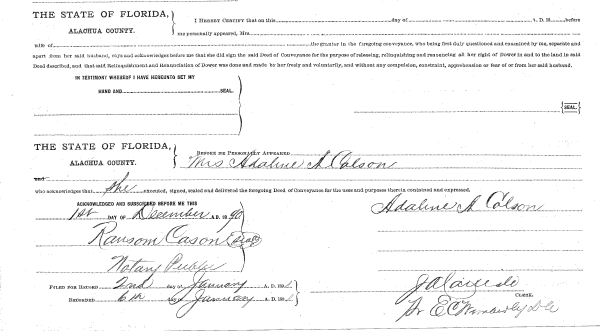 THE STATE OF FLORIDA,
ALACHUA COUNTY.
I HEREBY CERTIFY that on this day of A. D. 18 before
me personally appeared, Mrs.
wife of the grantor in the foregoing conveyance, who being first duly questioned and examined by me, separate and
apart from her said husband, says and acknowledges before me that she did sign the said Deed of Conveyance for the purpose of releasing, relinquishing and renouncing all her right of Dower in and to the land in said
Deed described, and that said Relinquishment and Renunciation of Dower was done and made by her freely and voluntarily, and without any compulsion, constraint, apprehension or fear of or from her said husband.
IN TESTIMONY WHEREOF I HAVE HEREUNTO SET MY
HAND AND SEAL.
SEAL.
THE STATE OF FLORIDA,
ALACHUA COUNTY.
BEFORE ME PERSONALLY APPEARED
Mrs Adaline A Colson
and
who acknowledges that she executed, signed, sealed and delivered the foregoing Deed of Conveyance for the uses and purposes therein contained and expressed.
ACKNOWLEDGED AND SUBSCRIBED BEFORE ME THIS
1st DAY OF December A.D. 1890
Adaline A Colson
Ransom Cason (Seal)
Notary Public
FILED FOR RECORD 2nd day of January A. D. 1891
RECORDED 6th day of January A. D. 1891
CLERK.
Pr E C Wimberly D C